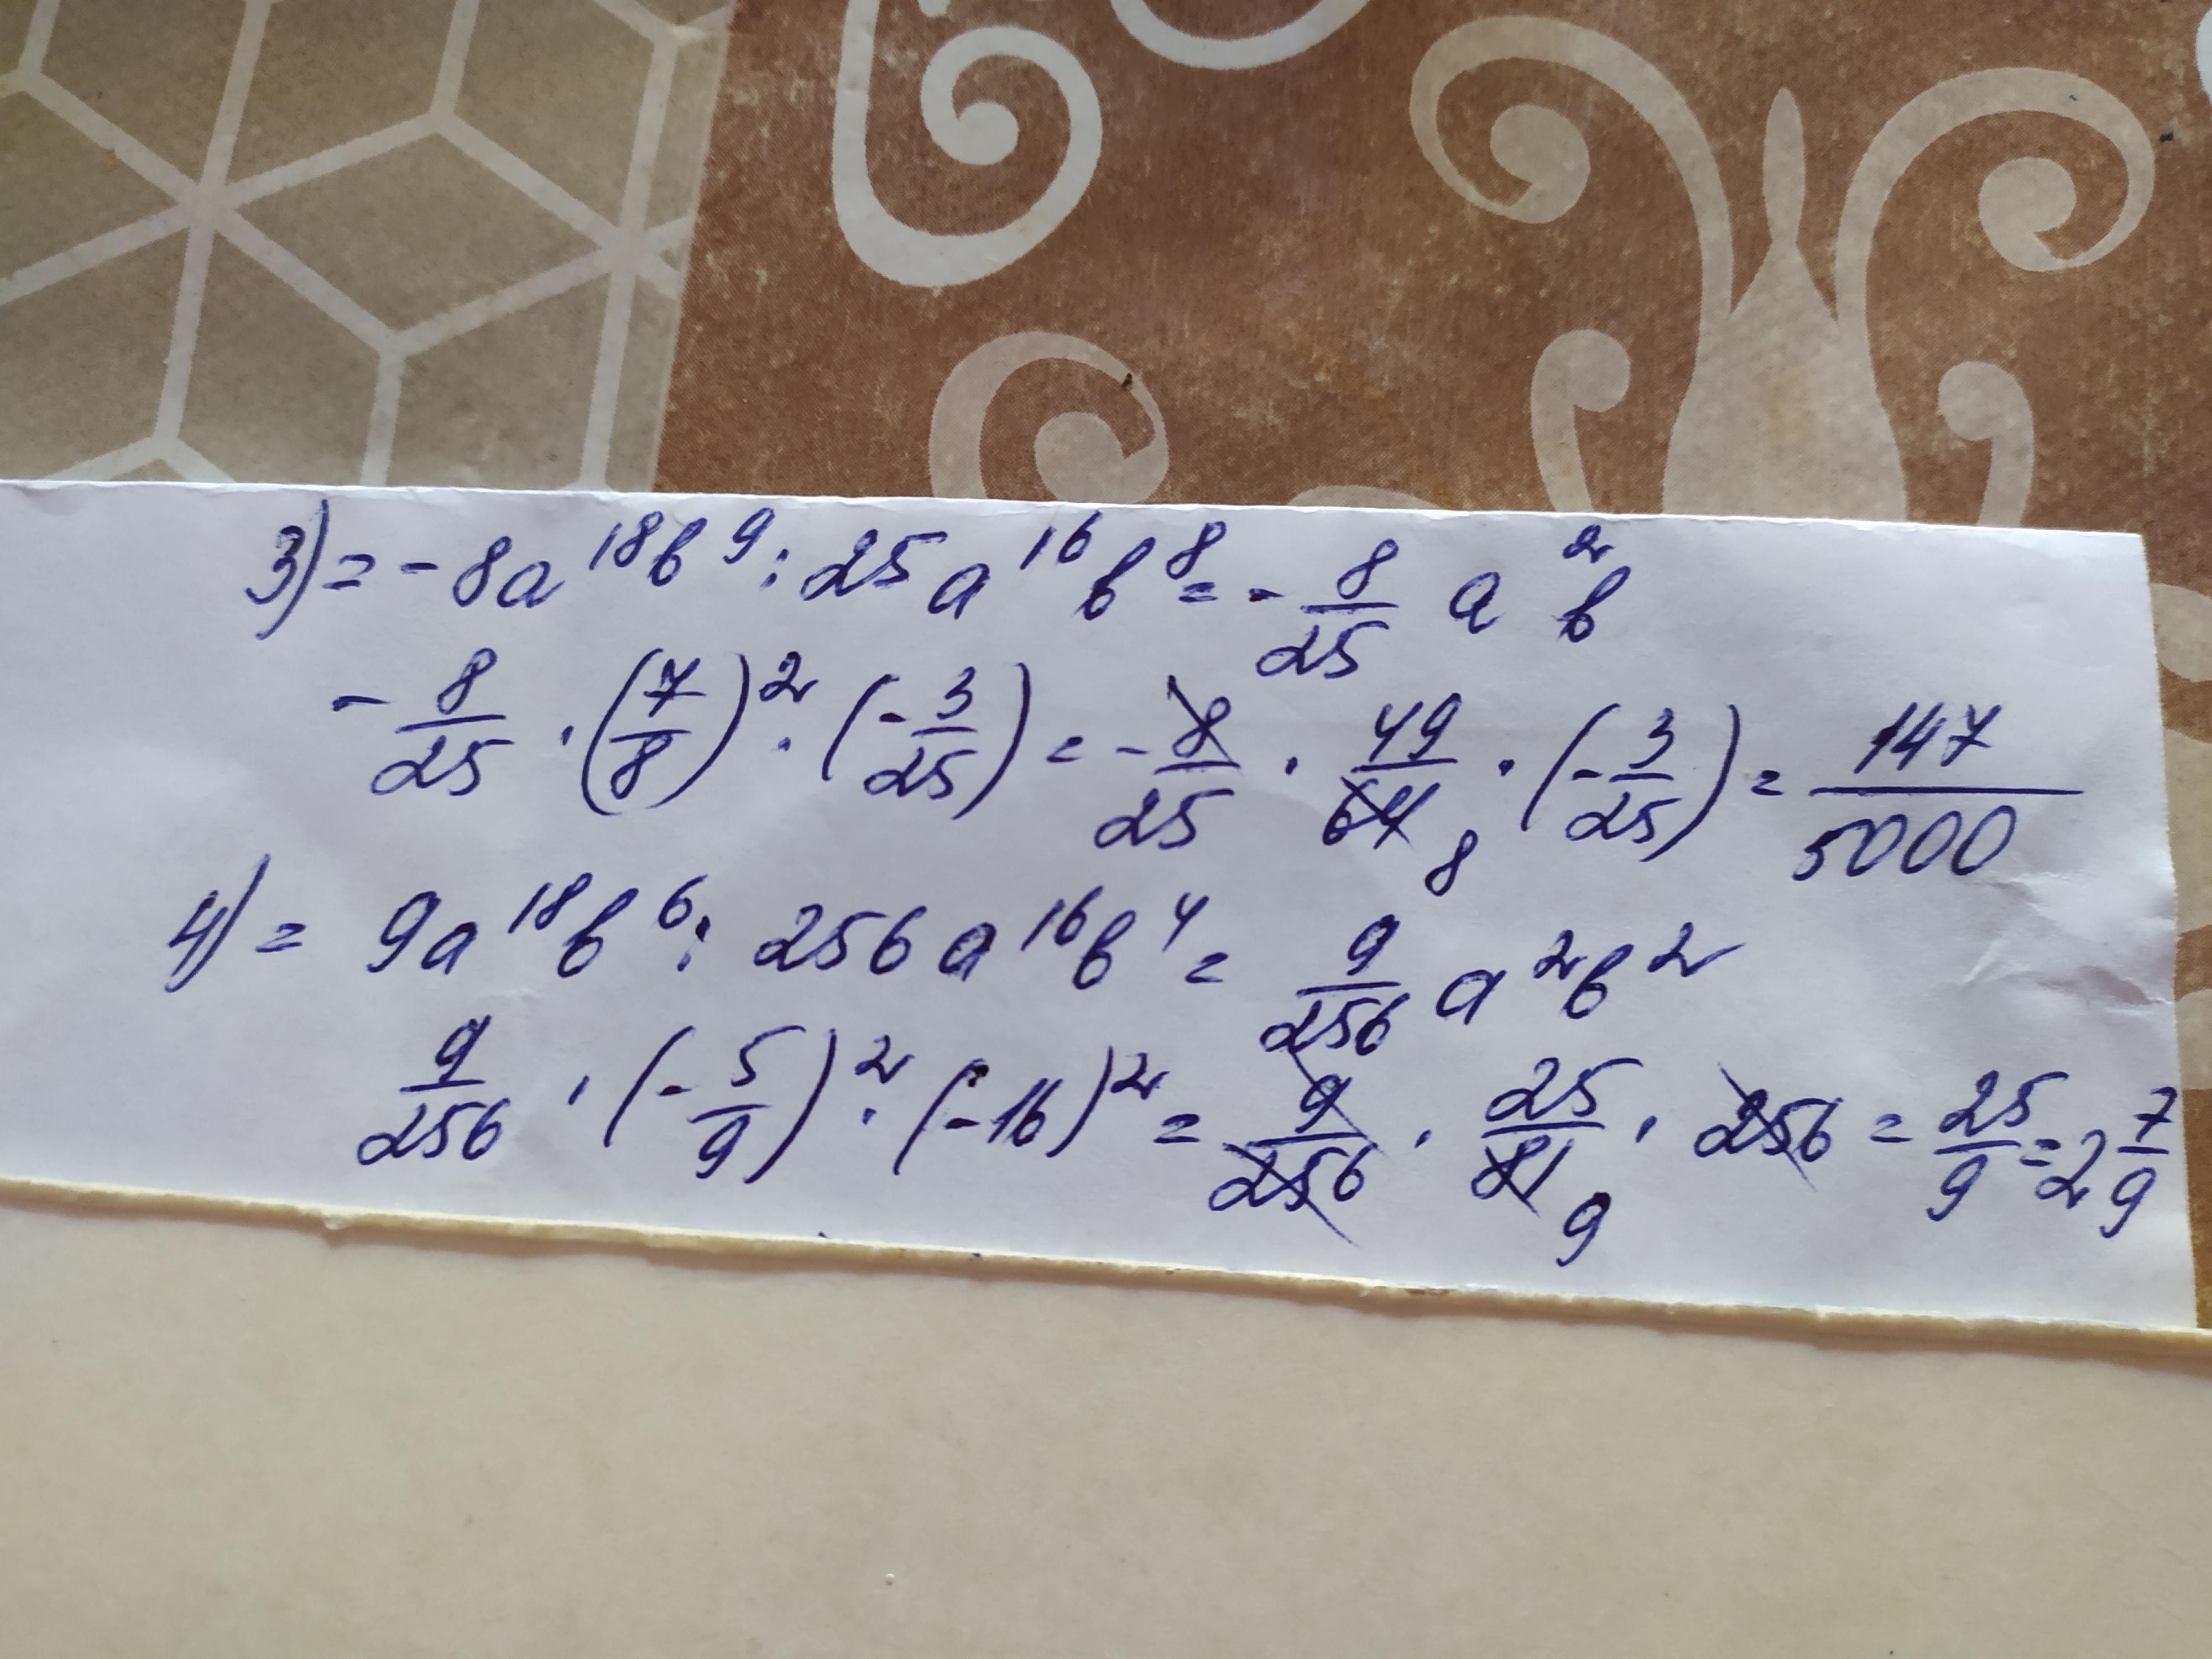 3) = -8a^18 b^9 : 25a^16 b^8 = - 8/25 a^2 b
- 8/25 · (7/8)^2 · (- 3/25) = - 8/25 · 49/64 8 · (- 3/25) = 147/5000
4) = 9a^18 b^6 : 256a^16 b^4 = 9/256 a^2 b^2
9/256 · (- 5/9)^2 · (-16)^2 = 9/256 · 25/81 9 · 256 = 25/9 = 2 7/9